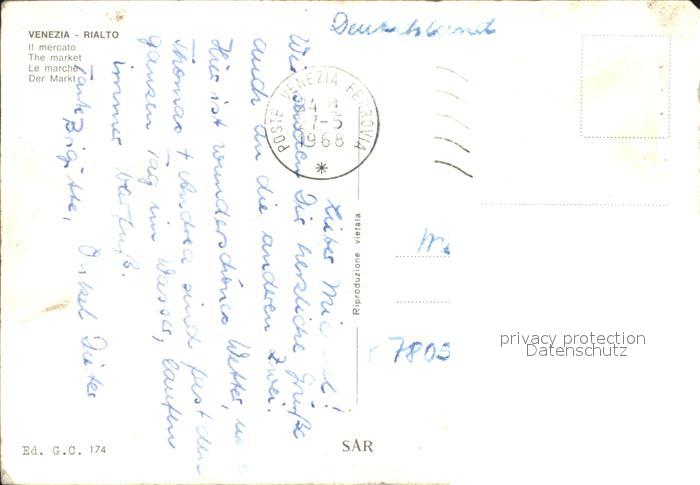 VENEZIA - RIALTO
Il mercato
The market
Le marché
Der Markt
Deutschland
POSTE VENEZIA FERROVIA
7-5
1968
Lieber
Wir senden Dir herzliche Grüße
auch an die anderen Zwei.
Hier ist wunderschönes Wetter,
Thomas + Andrea sind fast den
ganzen Tag im Wasser, laufen
immer barfuß.
Tante Brigitte, Onkel Dieter
Riproduzione vietata
7805
privacy protection
Datenschutz
Ed. G.C. 174
SAR